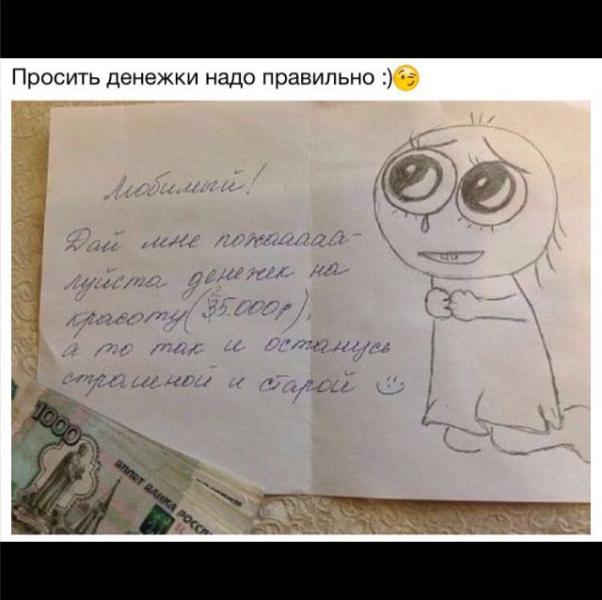 Просить денежки надо правильно :)😉
Любимый!
Дай мне пожааааа-
луйста денежек на
красоту (35.000р),
а то так и останусь
страшной и старой
1000
БИЛЕТ БАНКА РОССИИ